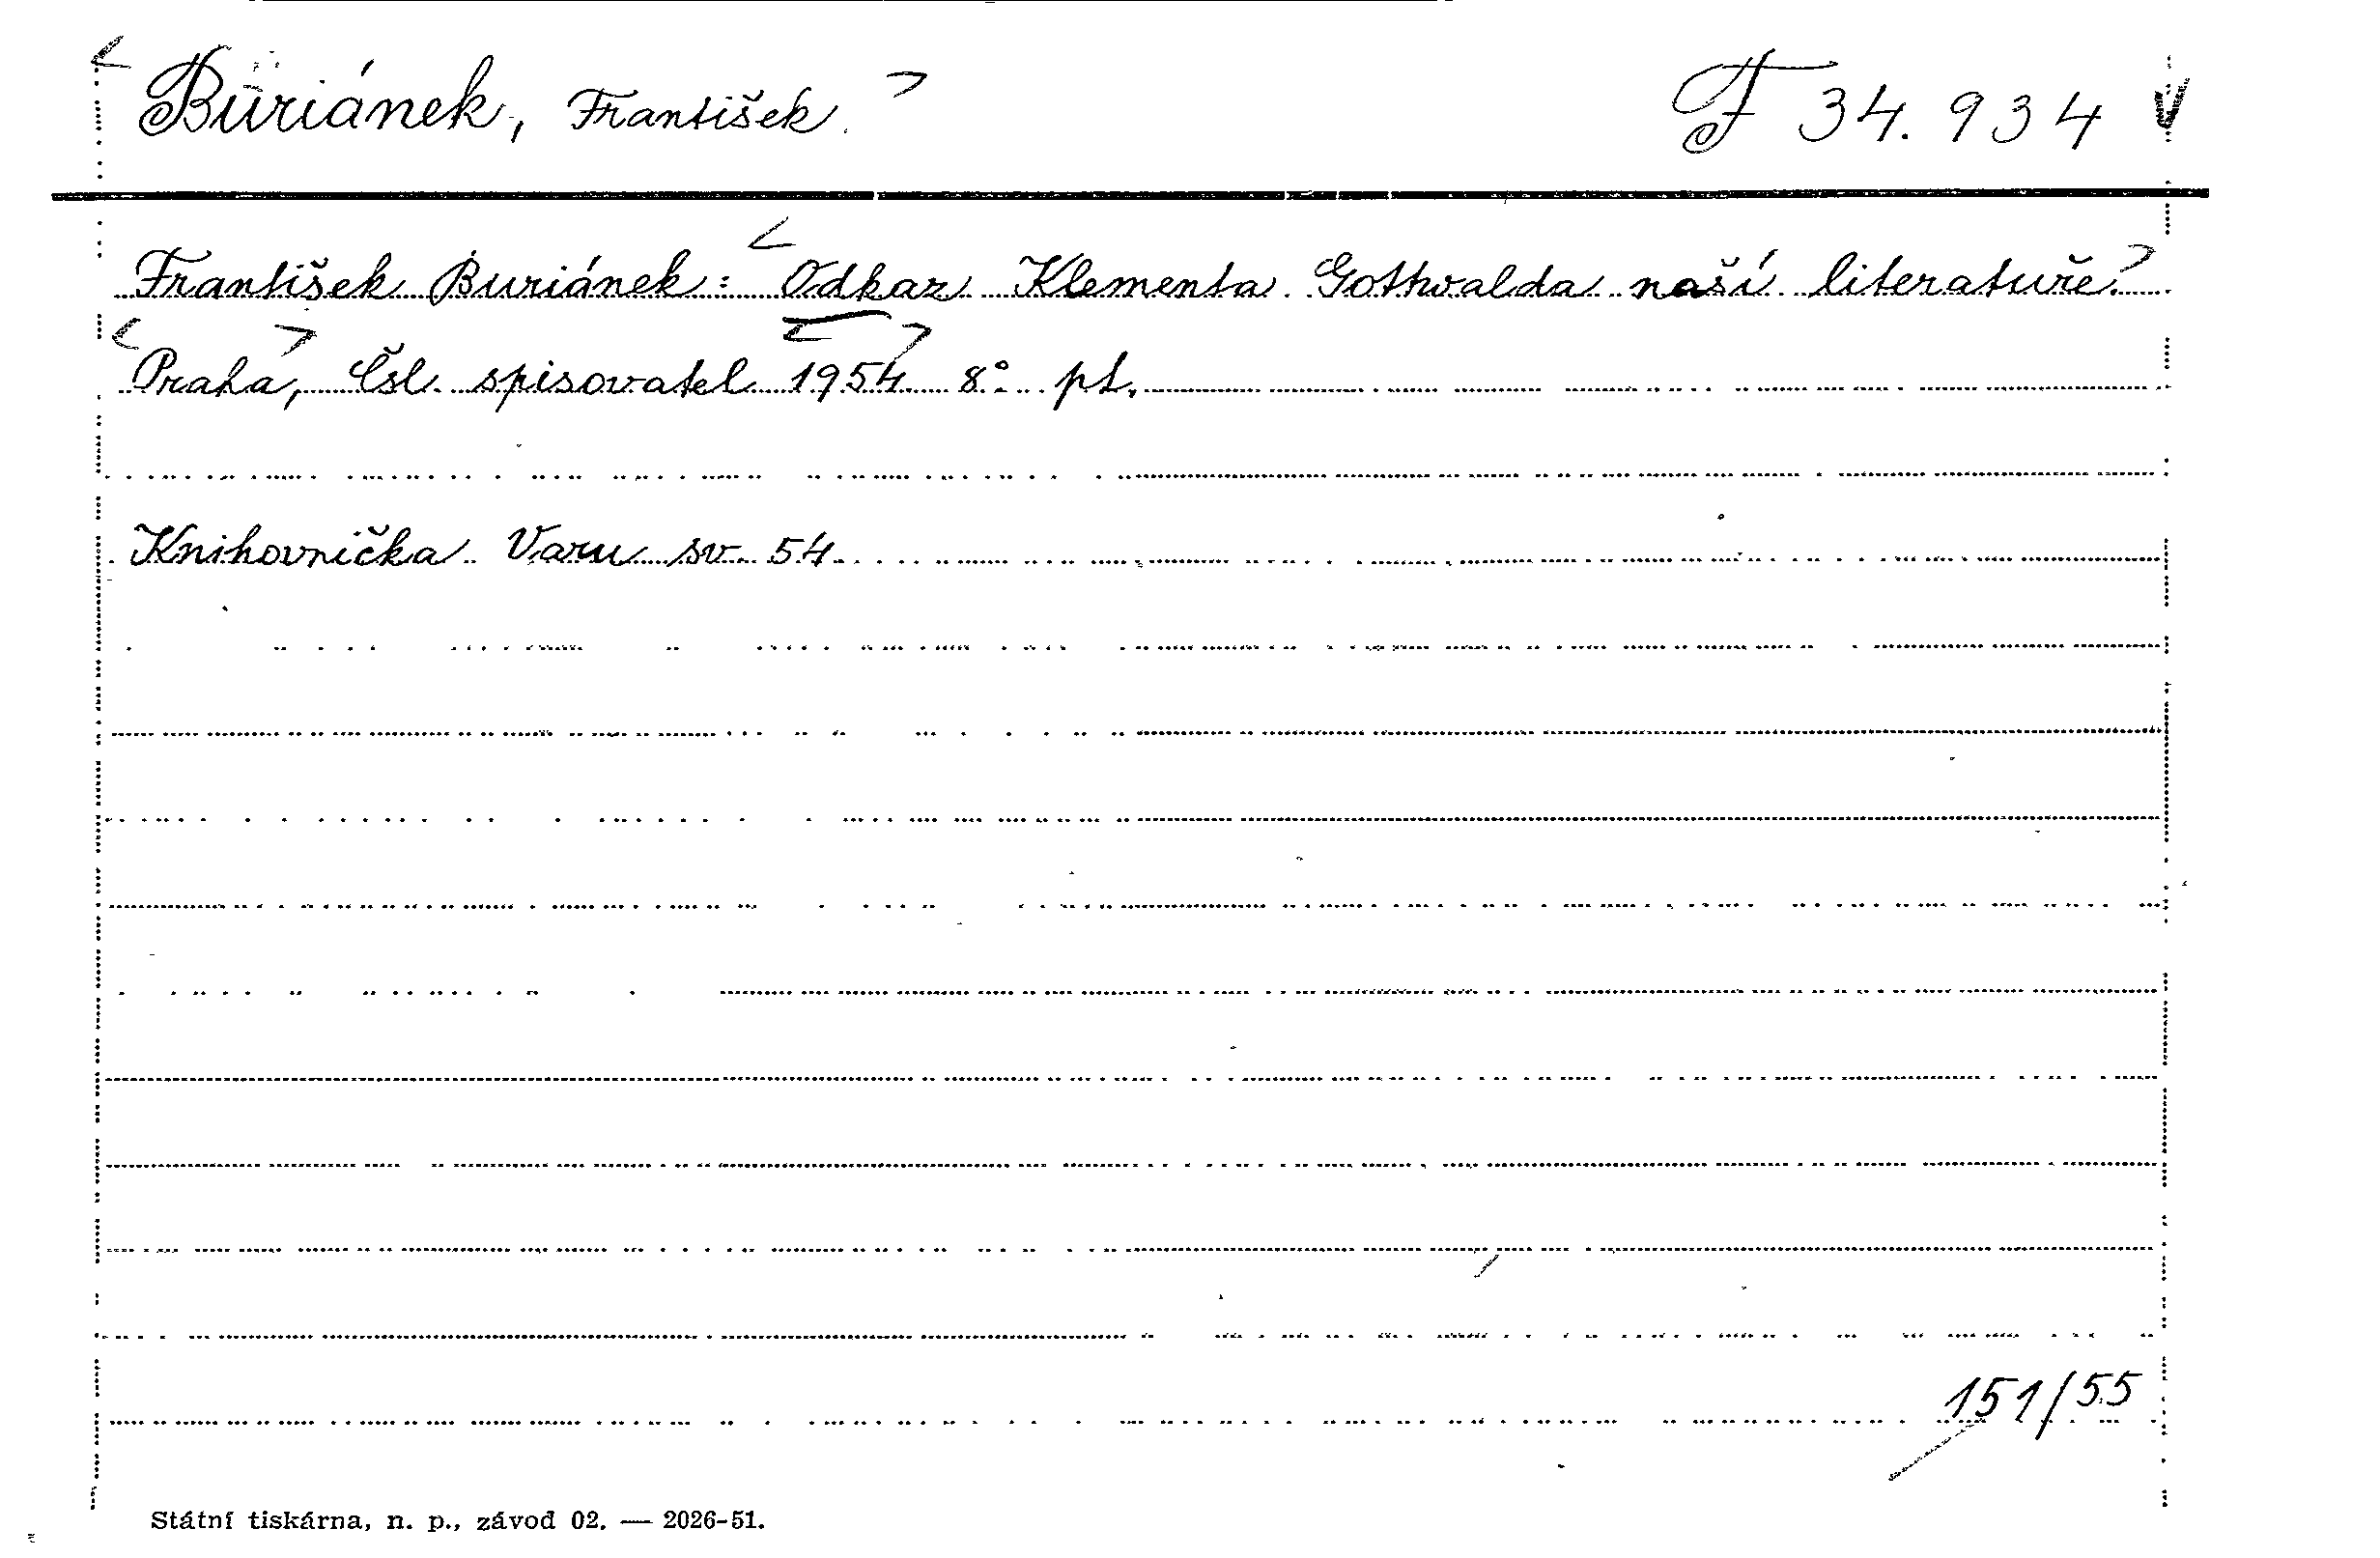 Buriánek, František. F 34.934
František Buriánek: Odkaz Klementa Gottwalda naší literatuře.
Praha, Čsl. spisovatel 1954 8° pt.
Knihovnička Varu sv. 54.
151/55
Státní tiskárna, n. p., závod 02. — 2026-51.